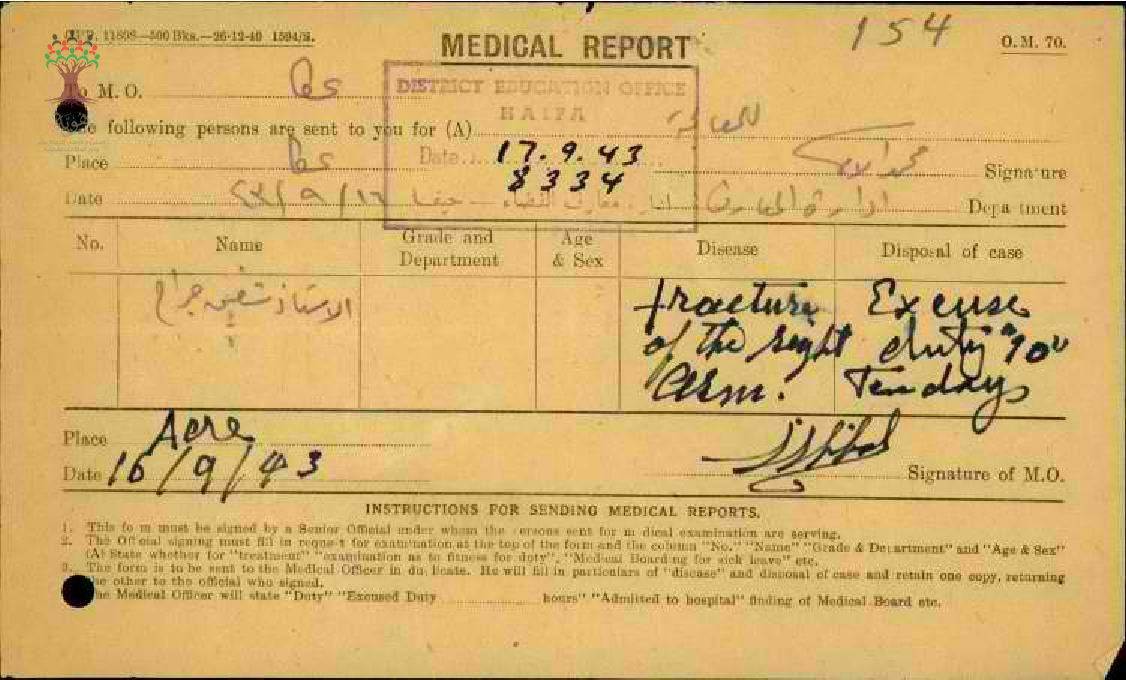 G.P.P. 11808—500 Bks.—26-12-40 1594/S.
154
MEDICAL REPORT
O. M. 70.
To M. O. عكا
DISTRICT EDUCATION OFFICE
HAIFA
The following persons are sent to you for (A) للمعاينة
Place عكا
Date 17.9.43
Signature
8334
Date ١٦/٩/٤٣
ادارة المعارف
Department
No. Name Grade and Department Age & Sex Disease Disposal of case
الاستاذ شفيق جراح
fracture of the right arm.
Excuse duty "10" Ten days
Place Acre
Date 16/9/43
Signature of M.O.
INSTRUCTIONS FOR SENDING MEDICAL REPORTS.
1. This form must be signed by a Senior Official under whom the persons sent for medical examination are serving.
2. The Official signing must fill in request for examination at the top of the form and the column "No." "Name" "Grade & Department" and "Age & Sex"
(A) State whether for "treatment" "examination as to fitness for duty", "Medical Boarding for sick leave" etc.
3. The form is to be sent to the Medical Officer in duplicate. He will fill in particulars of "disease" and disposal of case and retain one copy, returning
the other to the official who signed.
The Medical Officer will state "Duty" "Excused Duty .................. hours" "Admitted to hospital" finding of Medical Board etc.